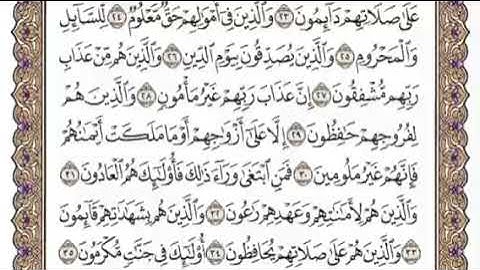 عَلَىٰ صَلَاتِهِمْ دَآئِمُونَ ٢٣ وَالَّذِينَ فِىٓ أَمْوَٰلِهِمْ حَقٌّ مَّعْلُومٌ ٢٤ لِّلسَّآئِلِ
وَالْمَحْرُومِ ٢٥ وَالَّذِينَ يُصَدِّقُونَ بِيَوْمِ الدِّينِ ٢٦ وَالَّذِينَ هُم مِّنْ عَذَابِ
رَبِّهِم مُّشْفِقُونَ ٢٧ إِنَّ عَذَابَ رَبِّهِمْ غَيْرُ مَأْمُونٍ ٢٨ وَالَّذِينَ هُمْ
لِفُرُوجِهِمْ حَٰفِظُونَ ٢٩ إِلَّا عَلَىٰٓ أَزْوَٰجِهِمْ أَوْ مَا مَلَكَتْ أَيْمَٰنُهُمْ
فَإِنَّهُمْ غَيْرُ مَلُومِينَ ٣٠ فَمَنِ ابْتَغَىٰ وَرَآءَ ذَٰلِكَ فَأُو۟لَٰٓئِكَ هُمُ الْعَادُونَ ٣١
وَالَّذِينَ هُمْ لِأَمَٰنَٰتِهِمْ وَعَهْدِهِمْ رَٰعُونَ ٣٢ وَالَّذِينَ هُم بِشَهَٰدَٰتِهِمْ قَآئِمُونَ
٣٣ وَالَّذِينَ هُمْ عَلَىٰ صَلَاتِهِمْ يُحَافِظُونَ ٣٤ أُو۟لَٰٓئِكَ فِى جَنَّٰتٍ مُّكْرَمُونَ ٣٥